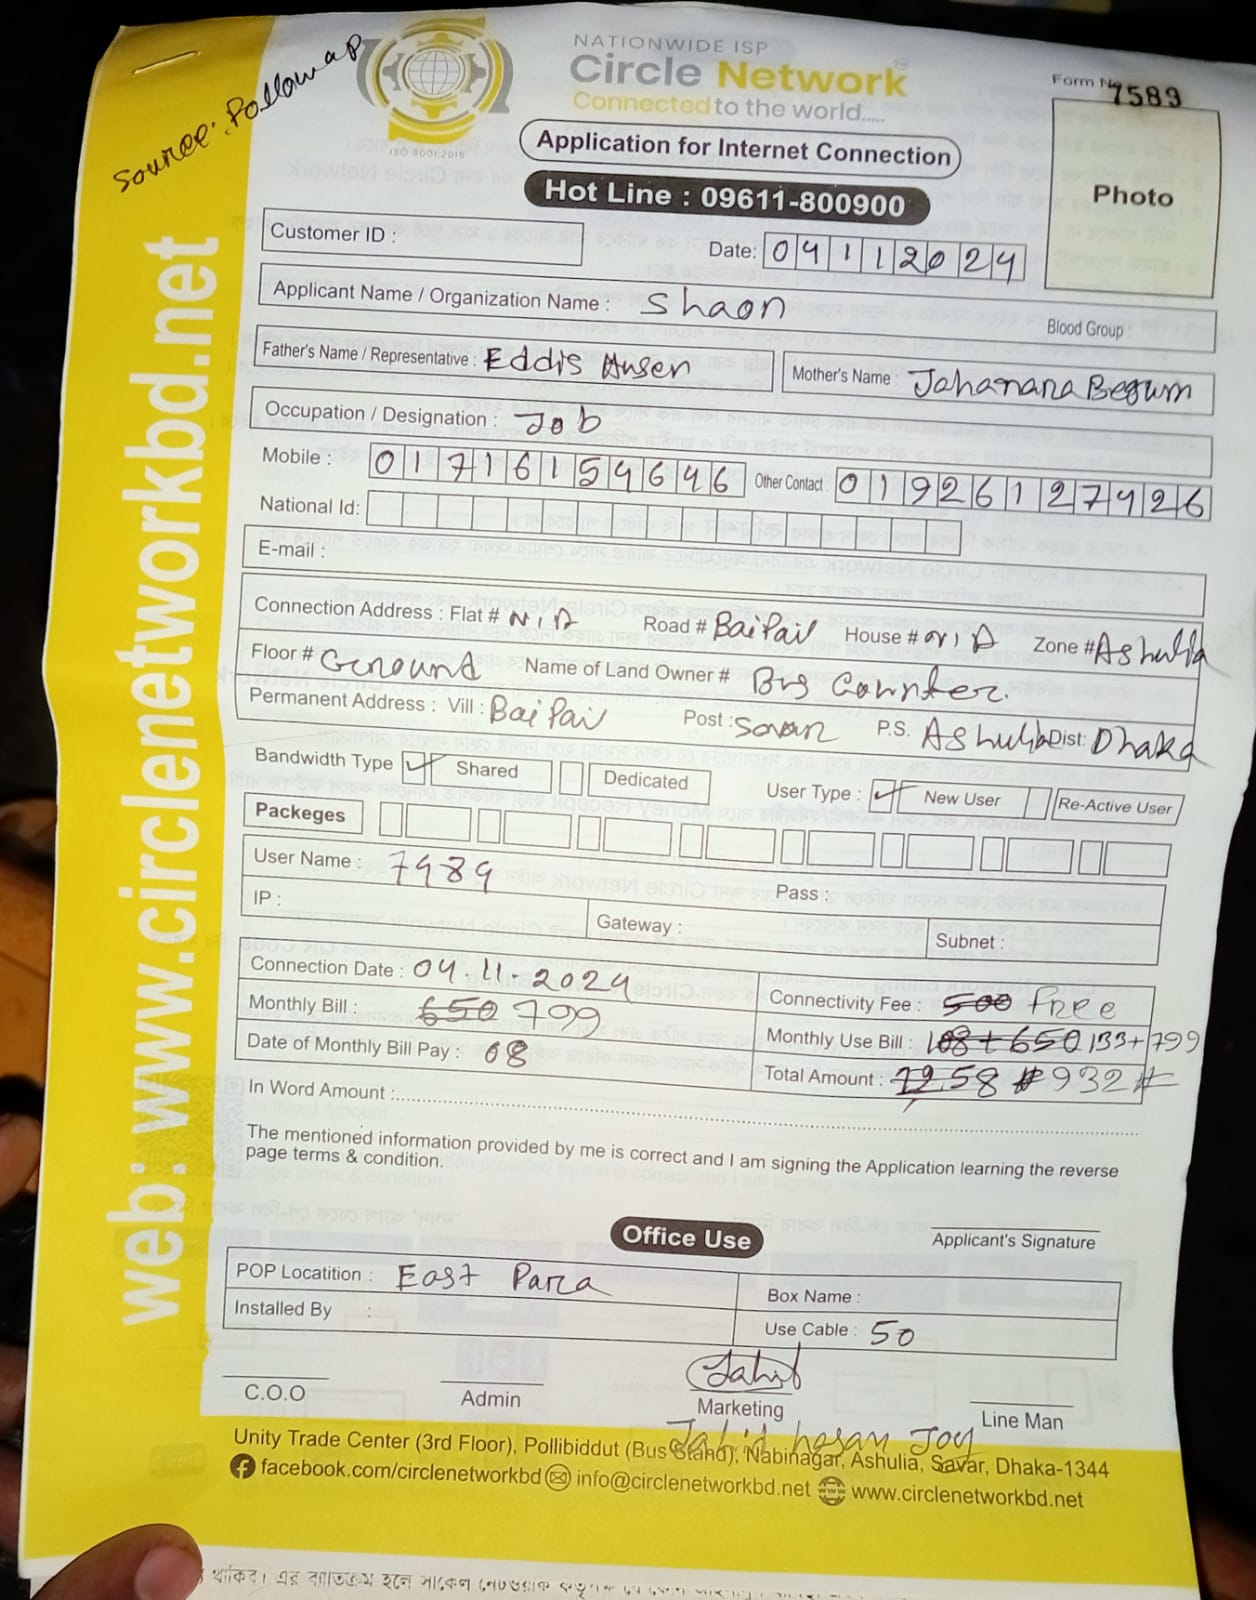 Source: Follow ap
NATIONWIDE ISP
Circle Network
Connected to the world.....
ISO 9001:2015
Form No 7589
Application for Internet Connection
Photo
Hot Line : 09611-800900
Customer ID :
Date: 04112024
Applicant Name / Organization Name : Shaon
Blood Group :
Father's Name / Representative : Eddis Ansen
Mother's Name : Jahanara Begum
Occupation / Designation : Job
Mobile : 01716154646 Other Contact : 01926127426
National Id:
E-mail :
Connection Address : Flat # N/A Road # Baipail House # N/A Zone # Ashulia
Floor # Ground Name of Land Owner # Bus Counter.
Permanent Address : Vill : Baipail Post : Savar P.S. Ashulia Dist: Dhaka
Bandwidth Type ✓ Shared Dedicated User Type : ✓ New User Re-Active User
Packeges
User Name : 7489 Pass :
IP : Gateway : Subnet :
Connection Date : 04.11.2024 Connectivity Fee : 500 Free
Monthly Bill : 650 799 Monthly Use Bill : 108+650 133+799
Date of Monthly Bill Pay : 08 Total Amount : 1258 # 932 #
In Word Amount :
The mentioned information provided by me is correct and I am signing the Application learning the reverse
page terms & condition.
Applicant's Signature
Office Use
POP Locatition : East Para Box Name :
Installed By : Use Cable : 50
Jahid
C.O.O Admin Marketing Line Man
Jahid hasan Joy
Unity Trade Center (3rd Floor), Pollibiddut (Bus Stand), Nabinagar, Ashulia, Savar, Dhaka-1344
facebook.com/circlenetworkbd info@circlenetworkbd.net www.circlenetworkbd.net
web: www.circlenetworkbd.net
থাকিব। এর ব্যাতিক্রম হলে সার্কেল নেটওয়ার্ক